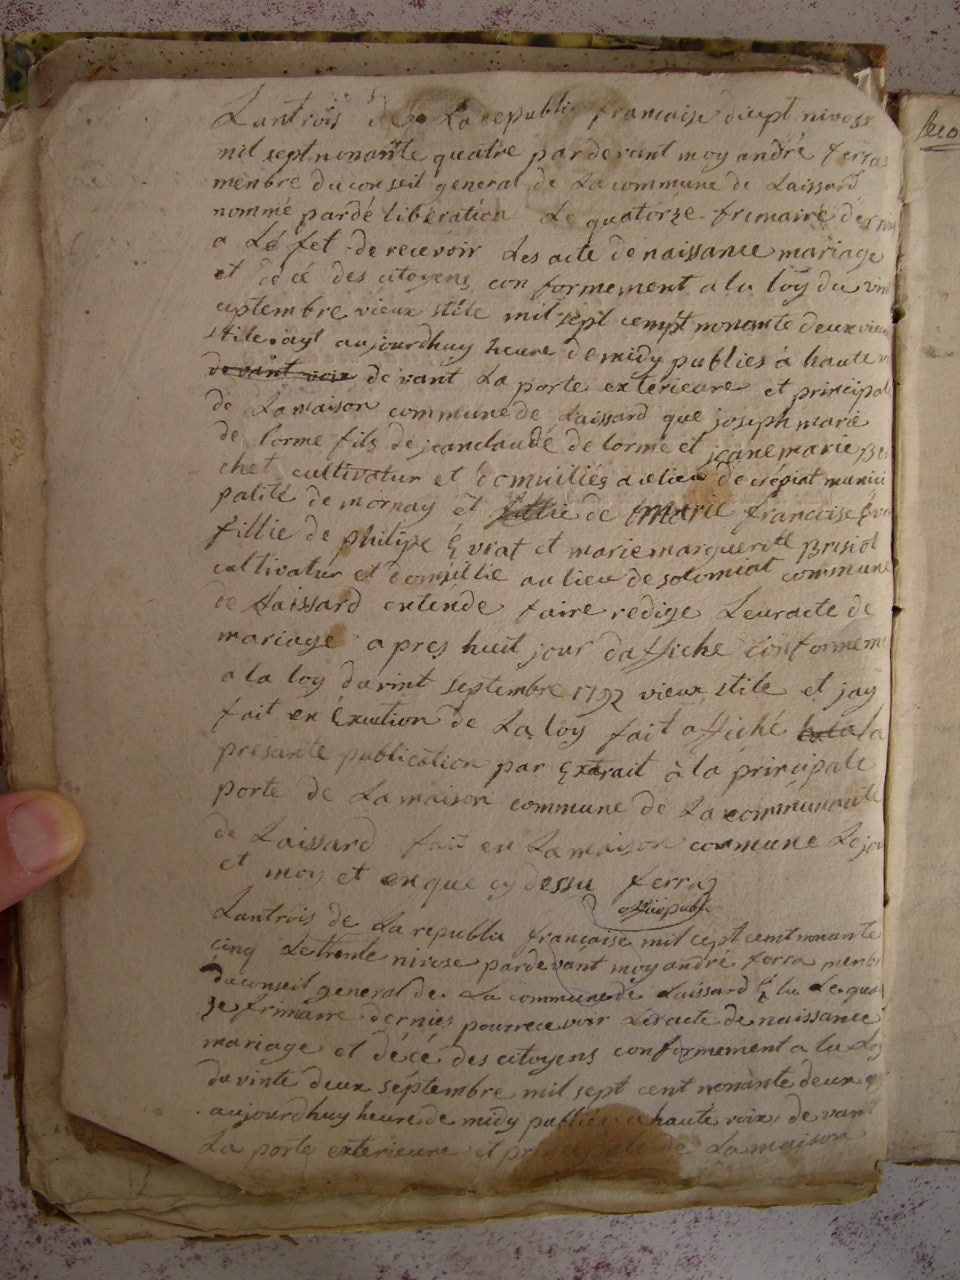 Lantrois de La republi francaise disept nivose
mil sept nonante quatre par devant moy andré ferras
menbre du conseil general de La commune de Laissard
nommé pardé libération Le quatorze frimaire dernié
a Lé fet de recevoir Les acte de naissance mariage
et décé des citoyens conformement a la loy du vin
ceptembre vieux stile mil sept cempt nonante deux vieux
stile. ayt aujourdhuy heure de midy publies à haute v
devant la porte exterieure et principal
de La maison commune de Laissard que joseph marie
de lorme fils de jeanclaude de lorme et jeanemarie Be
chet cultivatur et domiciliés au lieu de crépiat munici
palité de mornay et fillie de marie francoise Evra
fillie de philipe Evrat et marie marguerite Brisiol
cultivatur et domicillié au lieu de solomiat commune
de Laissard entende faire rédige Leuracte de
mariage apres huit jour daffiche conformeme
a la loy du vint septembre 1792 vieux stile et jay
fait en Exuction de La loy fait affiché la
présante publication par Extrait à la principale
porte de La maison commune de La communauté
de Laissard fait en La maison commune Lejou
et moy et en que cy dessu ferraz
offi publ
Lantrois de La republi française mil cept cent nonante
cinq Le trente nivose pardevant moy andré ferra menbr
du conseil general de La commune de Laissard Élu Le quator
ze frimaire dernies pourrecevoir Leracte de naissance
mariage et décé des citoyens conformement a la Loy
du vinte deux séptembre mil sept cent nonante deux
aujourdhuy heure de midy publiés a haute voix devant
La porte exterieure et principale de La maison